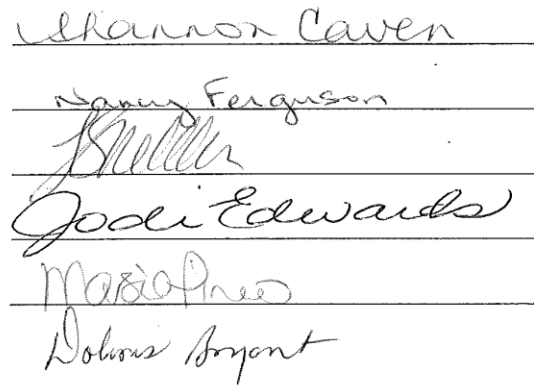 Shannon Caven
Nancy Ferguson
Jodi Edwards
Maria
Dolores Bryant